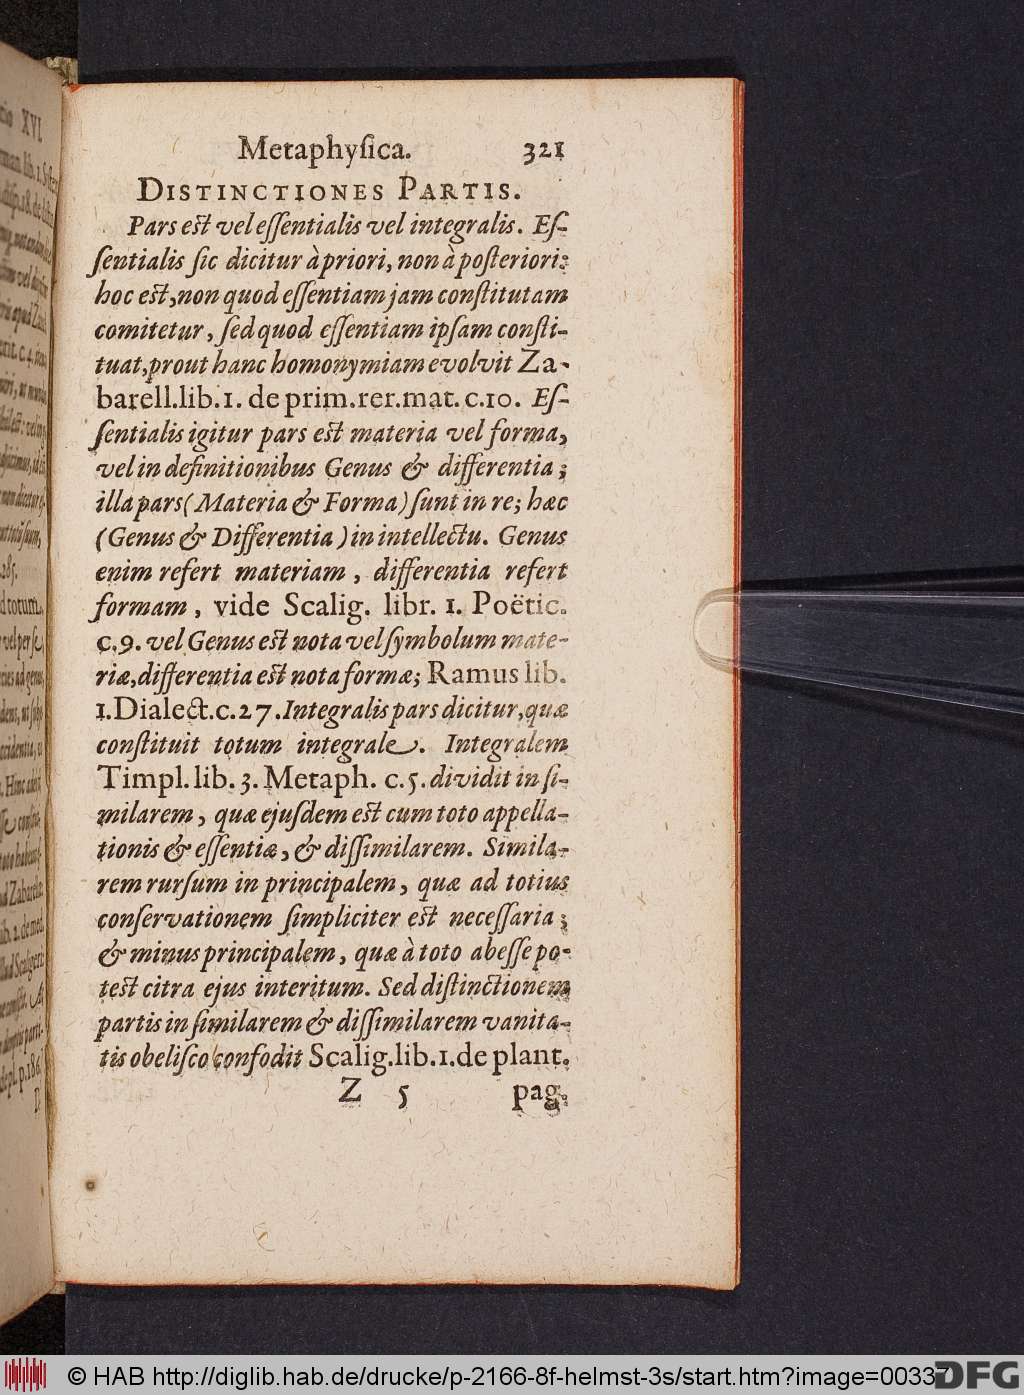 Metaphyſica. 321
DISTINCTIONES PARTIS.
Pars eſt vel eſſentialis vel integralis. Eſ-
ſentialis ſic dicitur à priori, non à poſteriori:
hoc eſt, non quod eſſentiam jam conſtitutam
comitetur, ſed quod eſſentiam ipſam conſti-
tuat, prout hanc homonymiam evolvit Za-
barell. lib. 1. de prim. rer. mat. c. 10. Eſ-
ſentialis igitur pars eſt materia vel forma,
vel in definitionibus Genus & differentia;
illa pars (Materia & Forma) ſunt in re; hæc
(Genus & Differentia) in intellectu. Genus
enim refert materiam, differentia refert
formam, vide Scalig. libr. 1. Poëtic.
c. 9. vel Genus eſt nota vel ſymbolum mate-
riæ, differentia eſt nota formæ; Ramus lib.
1. Dialect. c. 27. Integralis pars dicitur, quæ
conſtituit totum integrale. Integralem
Timpl. lib. 3. Metaph. c. 5. dividit in ſi-
milarem, quæ ejuſdem eſt cum toto appella-
tionis & eſſentiæ, & diſſimilarem. Simila-
rem rurſum in principalem, quæ ad totius
conſervationem ſimpliciter eſt neceſſaria;
& minus principalem, quæ à toto abeſſe po-
teſt citra ejus interitum. Sed diſtinctionem
partis in ſimilarem & diſſimilarem vanita-
tis obeliſco confodit Scalig. lib. 1. de plant.
Z 5 pag.
© HAB http://diglib.hab.de/drucke/p-2166-8f-helmst-3s/start.htm?image=00337
DFG